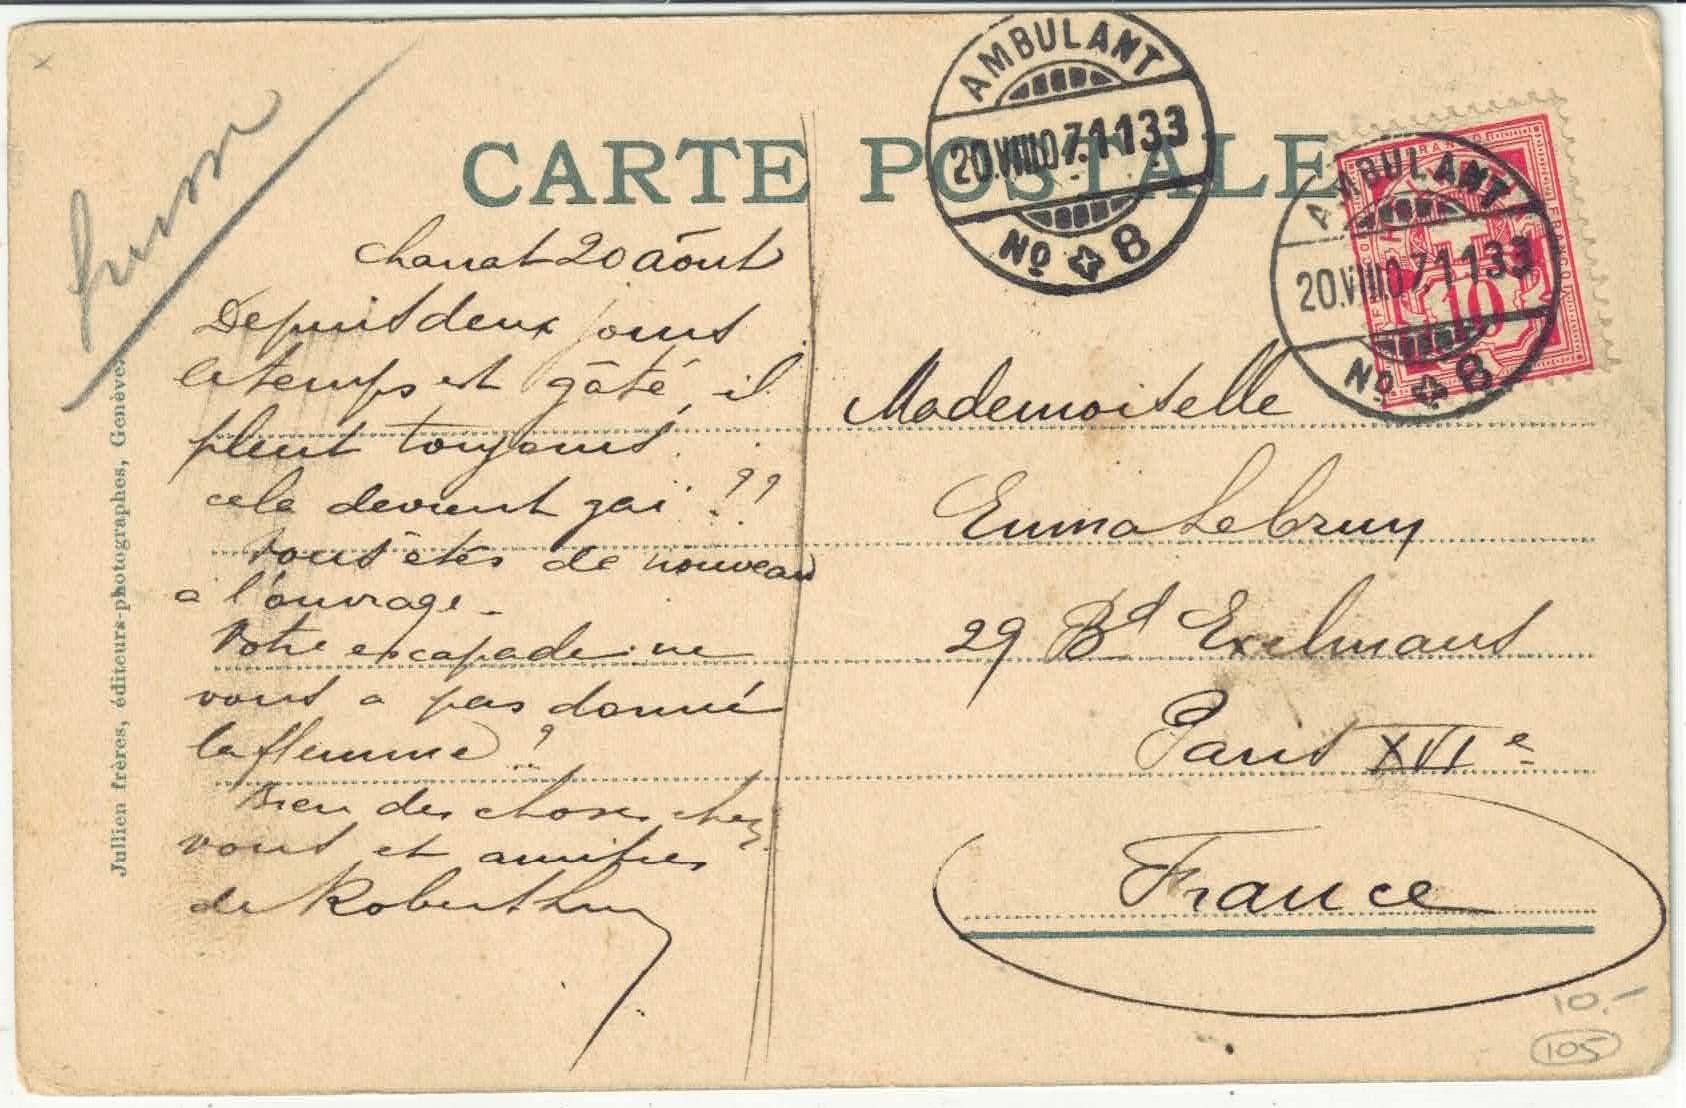 CARTE POSTALE
AMBULANT
20.VIII.07.1133
No 8
AMBULANT
20.VIII.07.1133
No 8
FRANCO
10
20 août
Depuis deux jours
le temps est gâté, il
pleut toujours.
cela devient gai ??
Vous êtes de nouveau
a l'ouvrage -
Votre escapade ne
vous a pas donné
la flemme ?
Bien des choses chez
vous et amitiés
de
Mademoiselle
Emma Lebrun
29 Bd Exelmans
Paris XVIe
France
Jullien frères, éditeurs-photographes, Genève.
10.-
105